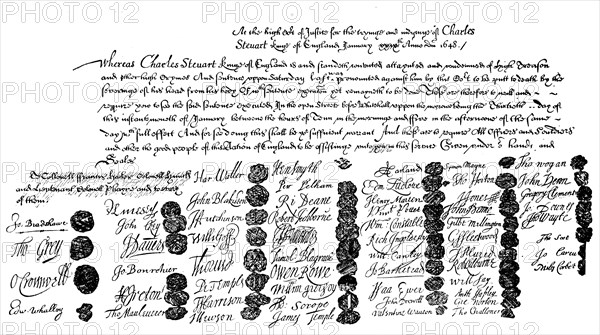 At the high Co͡rt of Justice for the tryinge and iudginge of Charles
Steuart Kinge of England January xxixth Anno Dni 1648./
Whereas Charles Steuart Kinge of England is and standeth convicted attaynted and condemned of High Treason
and other high Crymes And sentence uppon Saturday last was pronounced against him by this Co͡rt to be putt to death by the
severinge of his head from his body Of wch sentence execucon yet remayneth to be done These are therefore to will and
require you to see the said sentence executed In the open Streete before Whitehall uppon the morrowe being the Thirtieth day of
this instante moneth of January betweene the houres of Tenn in the morninge and five in the afternoone of the same
day wth full effect And for soe doing this shall be yor sufficient warrant And these are to require All Officers and Souldiers
and other the good people of this Nation of England to be assistinge unto you in this service Given under or hands and
Seales
To Collonell Francis Hacker Colonell Huncks
and Lieutenant Colonell Phayre and to every
of them.
Jo. Bradshawe
Tho. Grey
O. Cromwell
Edw. Whalley
M. Livesey
John Okey
J Danvers
Jo Bourchier
H Ireton
Tho Mauleverer
Har Waller
John Blakiston
J Hutchinson
Willi Goffe
Tho Pride
P Temple
T Harrison
J Hewson
Hen Smyth
Per Pelham
Ri Deane
Robert Tichborne
H Edwardes
Daniel Blagrave
Owen Rowe
William Purefoy
Ad Scrope
James Temple
A Garland
Edm Ludlowe
Henry Marten
Vinct Potter
Wm Constable
Richd Ingoldesby
Will Cawley
Jo Barkestead
Isaa Ewer
John Dixwell
Valentine Wauton
Symon Mayne
Tho Horton
J Jones
John Moore
Gilbt Millington
G Fleetwood
J Alured
Robt Lilburne
Will Say
Anth Stapley
Gre Norton
Tho Challoner
Tho Wogan
John Venn
Gregory Clement
Jo Downes
Tho Wayte
Tho Scot
Jo Carew
Miles Corbet